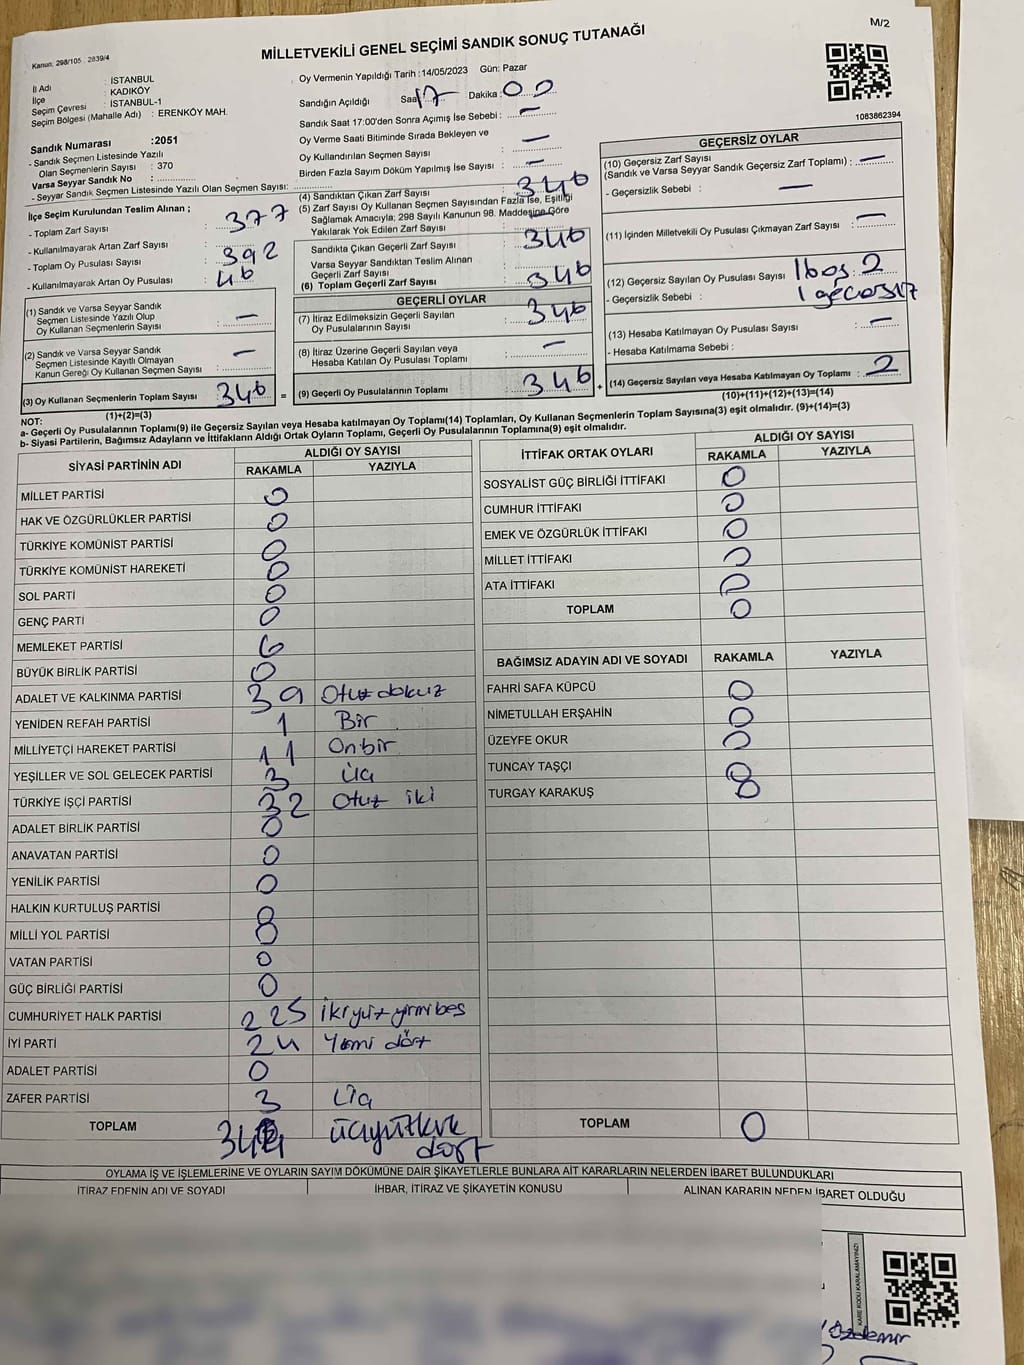 M/2
Kanun: 298/105 2839/4
MİLLETVEKİLİ GENEL SEÇİMİ SANDIK SONUÇ TUTANAĞI
İl Adı : İSTANBUL
İlçe : KADIKÖY
Seçim Çevresi : İSTANBUL-1
Seçim Bölgesi (Mahalle Adı) : ERENKÖY MAH.
Sandık Numarası :2051
- Sandık Seçmen Listesinde Yazılı
Olan Seçmenlerin Sayısı : 370
Varsa Seyyar Sandık No :
- Seyyar Sandık Seçmen Listesinde Yazılı Olan Seçmen Sayısı:
İlçe Seçim Kurulundan Teslim Alınan ;
- Toplam Zarf Sayısı : 377
- Kullanılmayarak Artan Zarf Sayısı :
- Toplam Oy Pusulası Sayısı : 392
- Kullanılmayarak Artan Oy Pusulası : 46
(1) Sandık ve Varsa Seyyar Sandık
Seçmen Listesinde Yazılı Olup
Oy Kullanan Seçmenlerin Sayısı : —
(2) Sandık ve Varsa Seyyar Sandık
Seçmen Listesinde Kayıtlı Olmayan
Kanun Gereği Oy Kullanan Seçmen Sayısı : —
(3) Oy Kullanan Seçmenlerin Toplam Sayısı : 346 =
(1)+(2)=(3)
Oy Vermenin Yapıldığı Tarih :14/05/2023 Gün: Pazar
Sandığın Açıldığı Saat 17 Dakika : 00
Sandık Saat 17:00'den Sonra Açımış İse Sebebi : —
Oy Verme Saati Bitiminde Sırada Bekleyen ve
Oy Kullandırılan Seçmen Sayısı : —
Birden Fazla Sayım Döküm Yapılmış İse Sayısı : —
(4) Sandıktan Çıkan Zarf Sayısı : 346
(5) Zarf Sayısı Oy Kullanan Seçmen Sayısından Fazla İse, Eşitliği
Sağlamak Amacıyla; 298 Sayılı Kanunun 98. Maddesine Göre
Yakılarak Yok Edilen Zarf Sayısı : —
Sandıkta Çıkan Geçerli Zarf Sayısı : 346
Varsa Seyyar Sandıktan Teslim Alınan
Geçerli Zarf Sayısı :
(6) Toplam Geçerli Zarf Sayısı : 346
GEÇERLİ OYLAR
(7) İtiraz Edilmeksizin Geçerli Sayılan
Oy Pusulalarının Sayısı : 346
(8) İtiraz Üzerine Geçerli Sayılan veya
Hesaba Katılan Oy Pusulası Toplamı : —
(9) Geçerli Oy Pusulalarının Toplamı : 346 +
1083862394
GEÇERSİZ OYLAR
(10) Geçersiz Zarf Sayısı
(Sandık ve Varsa Seyyar Sandık Geçersiz Zarf Toplamı) : —
- Geçersizlik Sebebi : —
(11) İçinden Milletvekili Oy Pusulası Çıkmayan Zarf Sayısı : —
(12) Geçersiz Sayılan Oy Pusulası Sayısı : 1 boş 2
- Geçersizlik Sebebi : 1 geçersiz
(13) Hesaba Katılmayan Oy Pusulası Sayısı : —
- Hesaba Katılmama Sebebi :
(14) Geçersiz Sayılan veya Hesaba Katılmayan Oy Toplamı : 2
(10)+(11)+(12)+(13)=(14)
NOT:
a- Geçerli Oy Pusulalarının Toplamı(9) ile Geçersiz Sayılan veya Hesaba katılmayan Oy Toplamı(14) Toplamları, Oy Kullanan Seçmenlerin Toplam Sayısına(3) eşit olmalıdır. (9)+(14)=(3)
b- Siyasi Partilerin, Bağımsız Adayların ve İttifakların Aldığı Ortak Oyların Toplamı, Geçerli Oy Pusulalarının Toplamına(9) eşit olmalıdır.
SİYASİ PARTİNİN ADI ALDIĞI OY SAYISI
RAKAMLA YAZIYLA
MİLLET PARTİSİ 0
HAK VE ÖZGÜRLÜKLER PARTİSİ 0
TÜRKİYE KOMÜNİST PARTİSİ 0
TÜRKİYE KOMÜNİST HAREKETİ 0
SOL PARTİ 0
GENÇ PARTİ 0
MEMLEKET PARTİSİ 6
BÜYÜK BİRLİK PARTİSİ 0
ADALET VE KALKINMA PARTİSİ 39 Otuz dokuz
YENİDEN REFAH PARTİSİ 1 Bir
MİLLİYETÇİ HAREKET PARTİSİ 11 Onbir
YEŞİLLER VE SOL GELECEK PARTİSİ 3 Üç
TÜRKİYE İŞÇİ PARTİSİ 32 Otuz iki
ADALET BİRLİK PARTİSİ 0
ANAVATAN PARTİSİ 0
YENİLİK PARTİSİ 0
HALKIN KURTULUŞ PARTİSİ 0
MİLLİ YOL PARTİSİ 0
VATAN PARTİSİ 0
GÜÇ BİRLİĞİ PARTİSİ 0
CUMHURİYET HALK PARTİSİ 225 ikiyüz yirmibeş
İYİ PARTİ 24 Yirmi dört
ADALET PARTİSİ 0
ZAFER PARTİSİ 3 Üç
TOPLAM 344 üçyüzkırk
dört
İTTİFAK ORTAK OYLARI ALDIĞI OY SAYISI
RAKAMLA YAZIYLA
SOSYALİST GÜÇ BİRLİĞİ İTTİFAKI 0
CUMHUR İTTİFAKI 0
EMEK VE ÖZGÜRLÜK İTTİFAKI 0
MİLLET İTTİFAKI 0
ATA İTTİFAKI 0
TOPLAM 0
BAĞIMSIZ ADAYIN ADI VE SOYADI RAKAMLA YAZIYLA
FAHRİ SAFA KÜPCÜ 0
NİMETULLAH ERŞAHİN 0
ÜZEYFE OKUR 0
TUNCAY TAŞÇI 0
TURGAY KARAKUŞ 0
TOPLAM 0
OYLAMA İŞ VE İŞLEMLERİNE VE OYLARIN SAYIM DÖKÜMÜNE DAİR ŞİKAYETLERLE BUNLARA AİT KARARLARIN NELERDEN İBARET BULUNDUKLARI
İTİRAZ EDENİN ADI VE SOYADI İHBAR, İTİRAZ VE ŞİKAYETİN KONUSU ALINAN KARARIN NEDEN İBARET OLDUĞU
KARE KODU KARALAMAYINIZ!
Özdemir